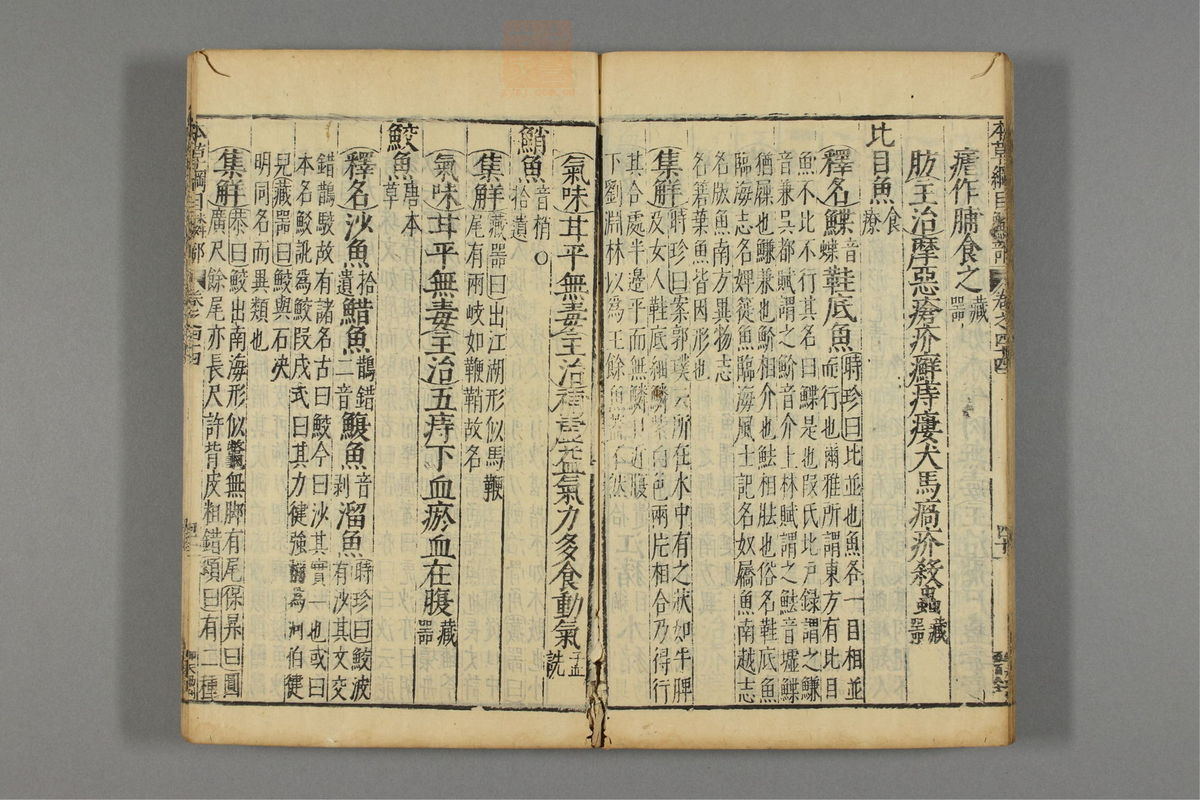 瘧作脯食之藏器
肪主治摩惡瘡疥癬痔瘻犬馬瘑疥殺蟲藏器
比目魚食療
釋名鰈音蝶鞋底魚時珍曰比並也魚各一目相並
而行也爾雅所謂東方有比目
魚不比不行其名曰鰈是也段氏北户録謂之鰜
音兼吳都賦謂之魪音介上林賦謂之魼音墟鰈
猶屧也鰜兼也魪相介也魼相胠也俗名鞋底魚
臨海志名婢簁魚臨海風土記名奴屩魚南越志
名版魚南方異物志
名箬葉魚皆因形也
集解時珍曰案郭璞云所在水中有之狀如牛脾
及女人鞋底細鱗紫白色兩片相合乃得行
其合處半邊平而無鱗口近腹
下劉淵林以爲王餘魚
氣味甘平無毒主治補虛益氣力多食動氣孟詵
鮹魚音梢拾遺
集解藏器曰出江湖形似馬鞭
尾有兩岐如鞭鞘故名
氣味甘平無毒主治五痔下血瘀血在腹藏器
鮫魚唐本草
釋名沙魚拾遺鯌魚鵲錯二音鰒魚音剥溜魚時珍曰鮫波
有沙其文交
錯鵲駮故有諸名古曰鮫今曰沙其實一也或曰
本名鮫訛爲鮫段成式曰其力健強稱為河伯健
兒藏器曰鮫與石決
明同名而異類也
集解恭曰鮫出南海形似鱉無脚有尾保昇曰圓
廣尺餘尾亦長尺許背皮粗錯頌曰有二種